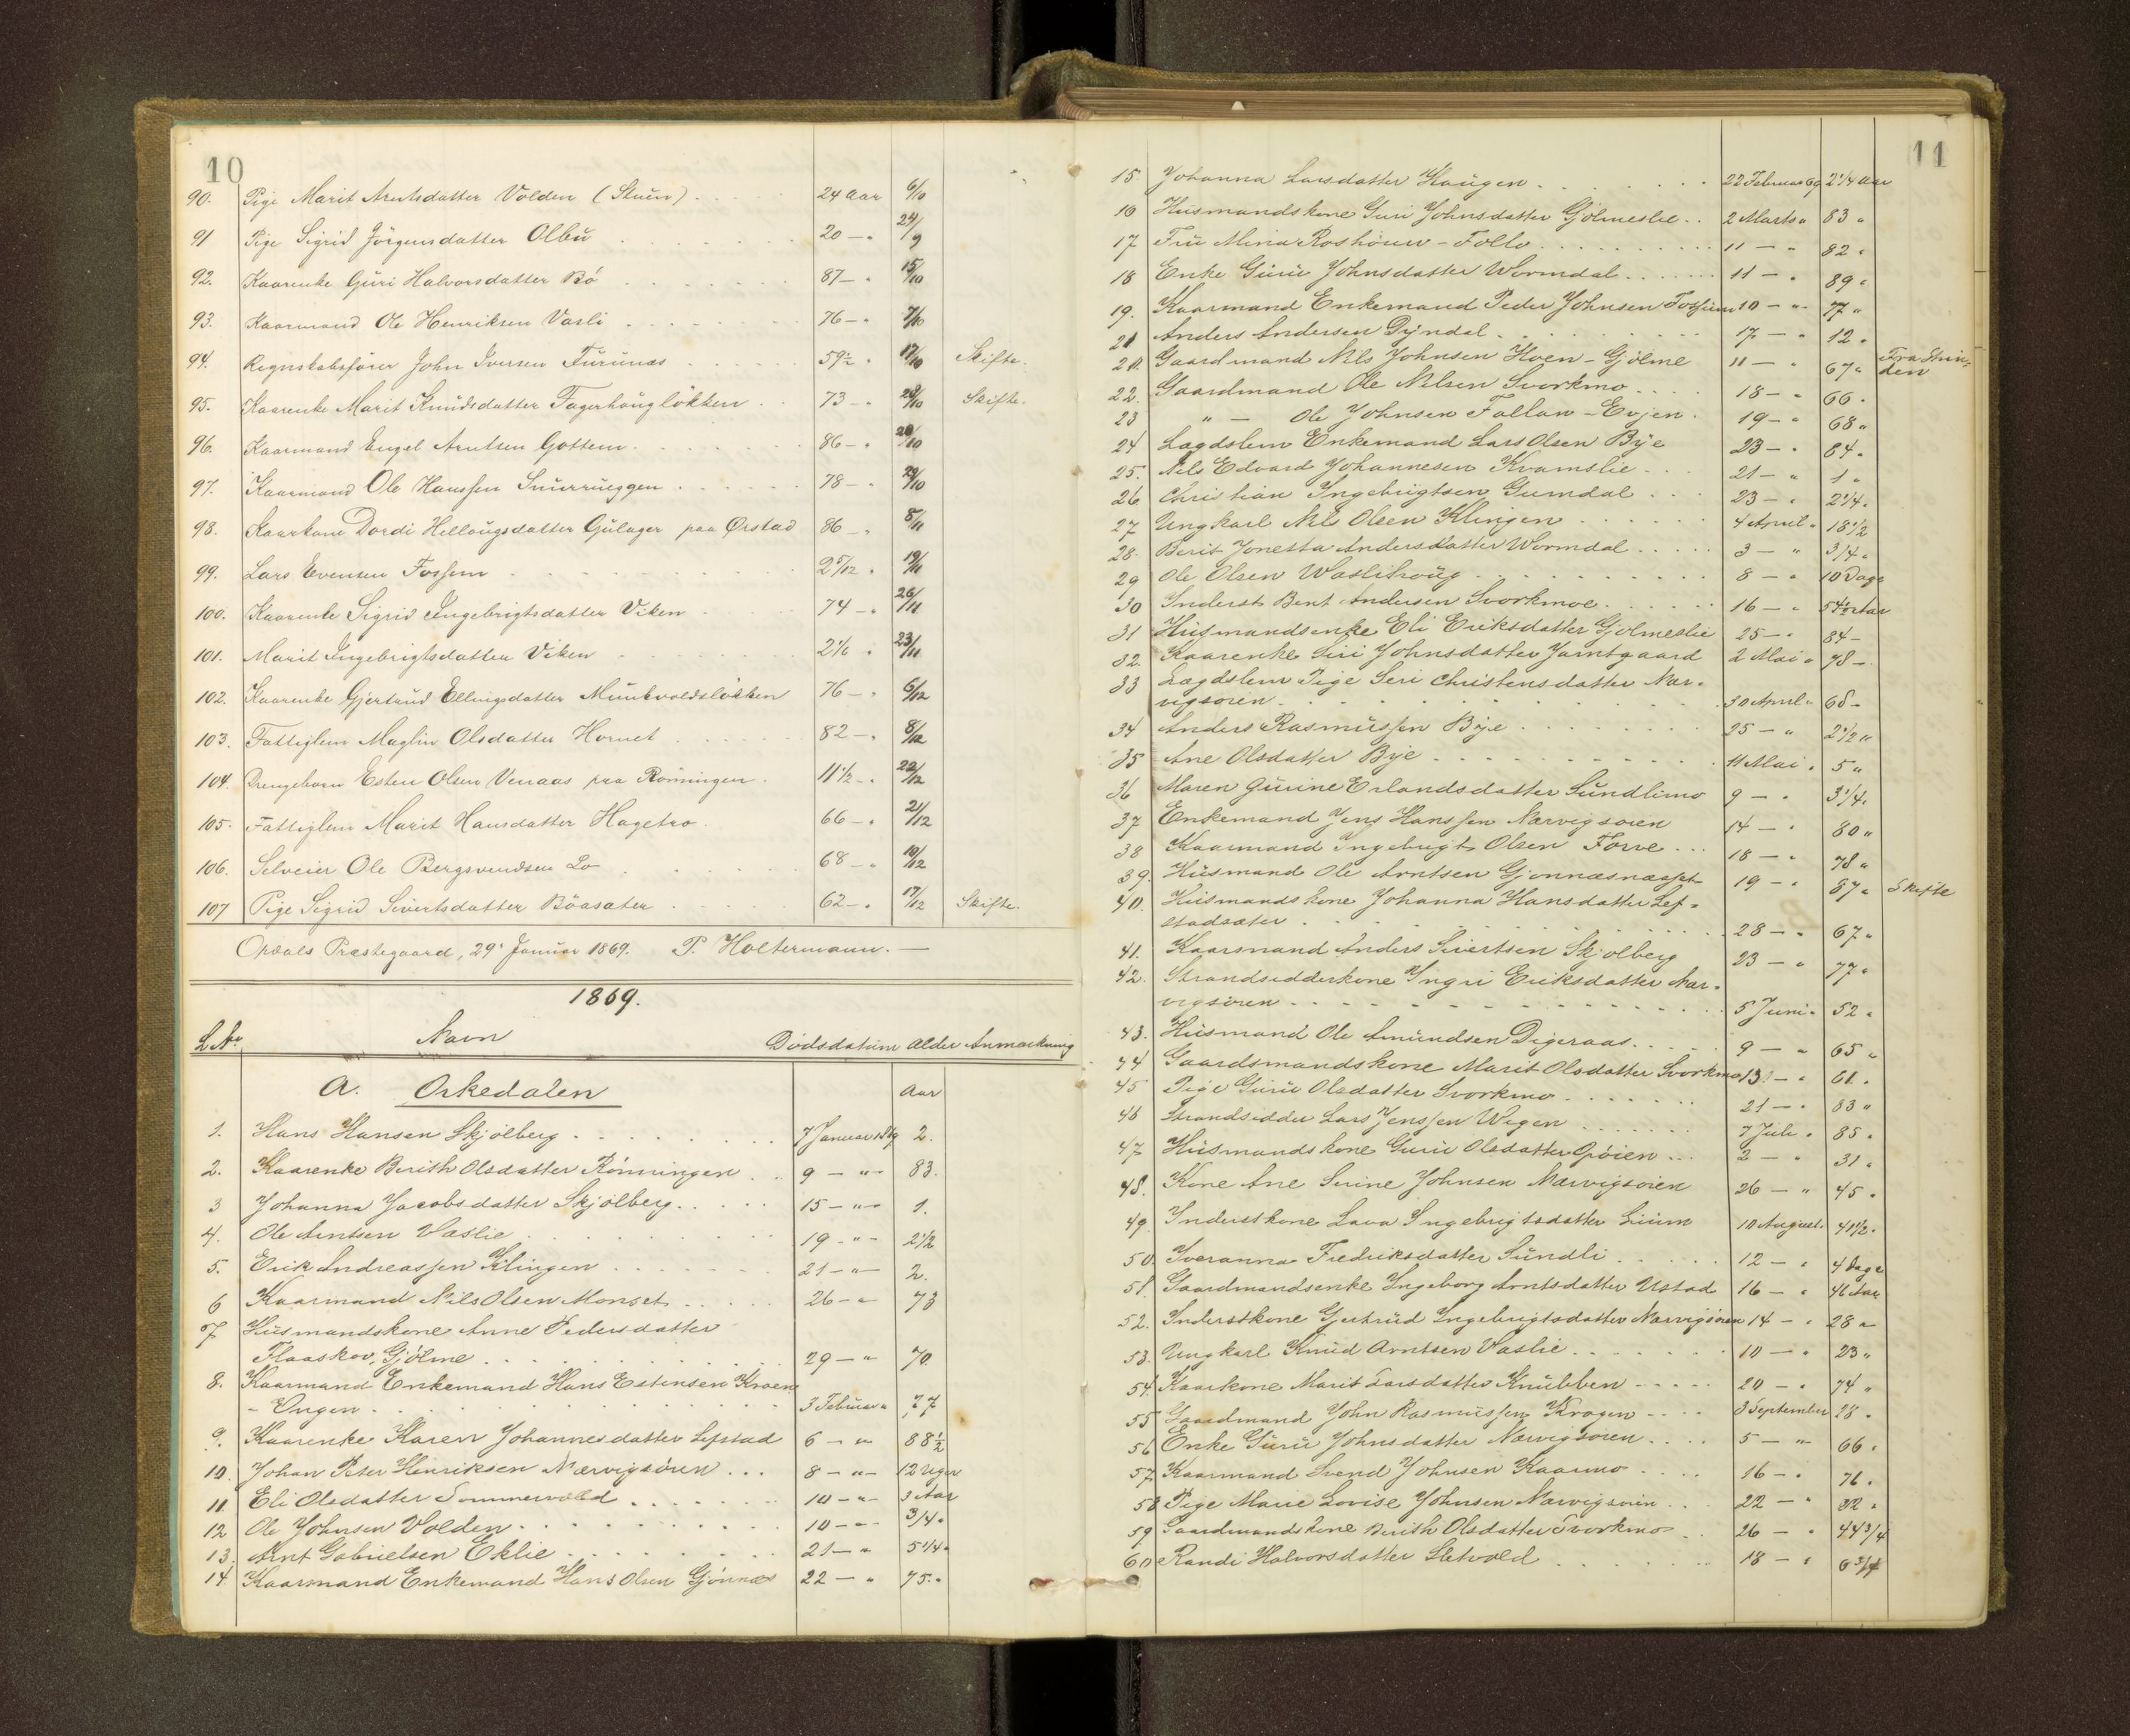 10
90. Pige Marit Arntsdatter Volden (Stuen) 24 Aar 6/10
91 Pige Sigrid Jörgensdatter Olbu 20 — " 24/9
92. Kaarenke Guri Halvorsdatter Bö 87 — " 15/10
93. Kaarmand Ole Henriksen Vasli 76 — " 7/10
94. Regnskabsfører John Iversen Furunæs 59½ " 17/10 Skifte.
95. Kaarenke Marit Knudsdatter Fagerhaugløkken 73 — " 28/10 Skifte.
96. Kaarmand Engel Arntsen Gottem 86 — " 28/10
97. Kaarmand Ole Hanssen Snurruggen 78 — " 29/10
98. Kaarkone Dordi Hellaugsdatter Gulager paa Ørstad 86 — " 8/11
99. Lars Evensen Fossem 2 5/12 " 19/11
100. Kaarenke Sigrid Ingebrigtsdatter Viken 74 — " 26/11
101. Marit Ingebrigtsdatter Viken 2 1/6 " 23/11
102. Kaarenke Gjertrud Ellingsdatter Munkvoldsløkken 76 — " 6/12
103. Fattiglem Maglin Olsdatter Hornet 82 — " 8/12
104. Drengebarn Esten Olsen Venaas paa Rønningen 11½ — " 22/12
105. Fattiglem Marit Hansdatter Hagetrø 66 — " 21/12
106. Selveier Ole Bergsvendsen Lo 68 — " 10/12
107 Pige Sigrid Sivertsdatter Böasæter 62 — " 17/12 Skifte.
Opdals Præstegaard, 29' Januar 1869. P. Holtermann. —
1869.
L.Nr. Navn Dødsdatum Alder Anmærkning
A. Orkedalen Aar
1. Hans Hansen Skjölberg 7 Januar 1869 2.
2. Kaarenke Berith Olsdatter Rönningen 9 — " — 83.
3 Johanna Jacobsdatter Skjölberg 15 — " — 1.
4. Ole Arntsen Vaslie 19 — " — 2½
5. Erik Andreassen Klingen 21 — " — 2.
6 Kaarmand Nils Olsen Monset 26 — " 73
7 Husmandskone Anne Pedersdatter
Flaaskov, Gjølme 29 — " 70
8. Kaarmand Enkemand Hans Estensen Kroen
- Engen 3 Februar " 77
9. Kaarenke Karen Johannesdatter Lefstad 6 — " 88½
10. Johan Peter Henriksen Nærvigsören 8 — " — 12 Uger
11 Eli Olsdatter Sommervold 10 — " — 3 Aar
12 Ole Johnsen Volden 10 — " — 3/4 "
13. Arnt Gabrielsen Eklie 21 — " 5 1/4 "
14. Kaarmand Enkemand Hans Olsen Gjönnæs 22 — " 75 "
11
15. Johanna Larsdatter Haugen 22 Februar 69 2 1/4 Aar
16 Husmandskone Guri Johnsdatter Gjölmeslie 2 Marts " 83 "
17 Fru Mina Roshouw - Follo 11 — " 82 "
18 Enke Guru Johnsdatter Wormdal 11 — " 89 "
19. Kaarmand Enkemand Peder Johnsen Fossum 10 — " 77 "
21 Anders Andersen Dyndal 17 — " 12 "
20. Gaardmand Nils Johnsen Hoen - Gjölme 11 — " 67 "
22. Gaardmand Ole Nilsen Svorkmo 18 — " 66 "
23 " — Ole Johnsen Follan - Evjen 19 — " 68 "
24 Lægdslem Enkemand Lars Olsen Bye 23 — " 84 "
25. Nils Edvard Johannesen Kvamslie 21 — " 1 "
26 Christian Ingebrigtsen Gumdal 23 — " 2 1/4 "
27 Ungkarl Nils Olsen Klingen 4 April " 18 1/2
28. Berit Jonetta Andersdatter Wormdal 3 — " 3/4 "
29 Ole Olsen Waslihaug 8 — " 10 Dage
30 Inderst Bent Andersen Svorkmoe 16 — " 54½ Aar
31 Husmandsenke Eli Eriksdatter Gjølmeslie 25 — " 84 —
32. Kaarenke Siri Johnsdatter Jamtgaard 2 Mai " 78 —
33 Lægdslem Pige Seri Christensdatter Nær-
vigsören 30 April " 68 "
34 Anders Rasmussen Bye 25 — " 2 1/2 "
35 Ane Olsdatter Bye 11 Mai " 5 "
36 Maren Gurine Erlandsdatter Sundlimo 9 — " 3 1/4 "
37 Enkemand Jens Hanssen Nærvigsören 14 — " 80 "
38 Kaarmand Ingebrigt Olsen Forve 18 — " 78 "
39. Husmand Ole Arntsen Gjønnæsnæsset 19 — " 57 " Skifte
40. Husmandskone Johanna Hansdatter Lef-
stadsæter 28 — " 67 "
41. Kaarmand Anders Sivertsen Skjölberg 23 — " 77 "
42. Strandsidderkone Ingri Eriksdatter Nær-
vigsören 5 Juni " 52 "
43. Husmand Ole Amundsen Digeraas 9 — " 65 "
44 Gaardsmandskone Marit Olsdatter Svorkmo 13 — " 61 "
45 Pige Guru Olsdatter Svorkmo 21 — " 83 "
46 Strandsidder Lars Jenssen Wigen 7 Juli " 85 "
47 Husmandskone Guru Olsdatter Opöien 2 — " 31 "
48. Kone Ane Serine Johnsen Nærvigsören 26 — " 45 "
49. Inderstkone Lava Ingebrigtsdatter Lium 10 August " 41 1/2 "
50. Iveranna Fredriksdatter Sundli 12 — " 4 Dage
51. Gaardmandsenke Ingeborg Arntsdatter Ustad 16 — " 46 Aar
52. Inderstkone Gjertrud Ingebrigtsdatter Nærvigsören 14 — " 28 "
53. Ungkarl Knud Arntsen Vaslie 10 — " 23 "
54. Kaarkone Marit Larsdatter Knubben 20 — " 74 "
55 Gaardmand John Rasmussen Krogen 3 September 28 "
56 Enke Guru Johnsdatter Nærvigsören 5 — " 66 "
57. Kaarmand Svend Johnsen Kaarmo 16 — " 71 "
58 Pige Marie Lovise Johnsen Nærvigsören 22 — " 32 "
59 Gaardmandskone Berith Olsdatter Svorkmo 26 — " 44 3/4
60 Randi Halvorsdatter Sletvold 18 — " 6 3/4